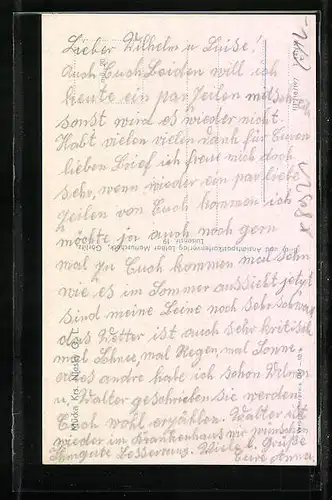 Lieber Wilhelm u Luise!
Auch Euch Beiden will ich
heute ein par Zeilen mitschr
sonst wird es wieder nicht.
Habt vielen vielen Dank für Euren
lieben Brief ich freue mich doch
sehr, wenn wieder ein par liebe
Zeilen von Euch kommen ich
möchte ja auch noch gern
mal zu Euch kommen mal sehn
wie es im Sommer aussieht jetzt
sind meine Beine noch sehr schwach
das Wetter ist auch sehr kritisch
mal Schnee, mal Regen, mal Sonne,
alles andre habe ich schon
u, Walter geschrieben sie werden
Euch wohl erzählen. Walter ist
wieder im Krankenhaus wir wünschen
gute Besserung. Viele l. Grüße
Eure Anna.
Mücka Krs. Niesky
Ansichtspostkartenverlag Lothar
Luisenstr. 19
Görlitz